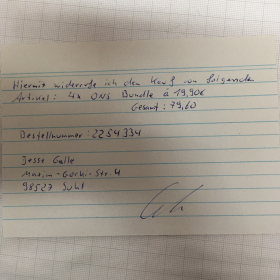 Hiermit widerrufe ich den Kauf von folgenden
Artikel: 4x ONS Bundle à 19,90€
Gesamt: 79,60
Bestellnummer: 2254334
Jesse Galle
Maxim-Gorki-Str. 4
98527 Suhl